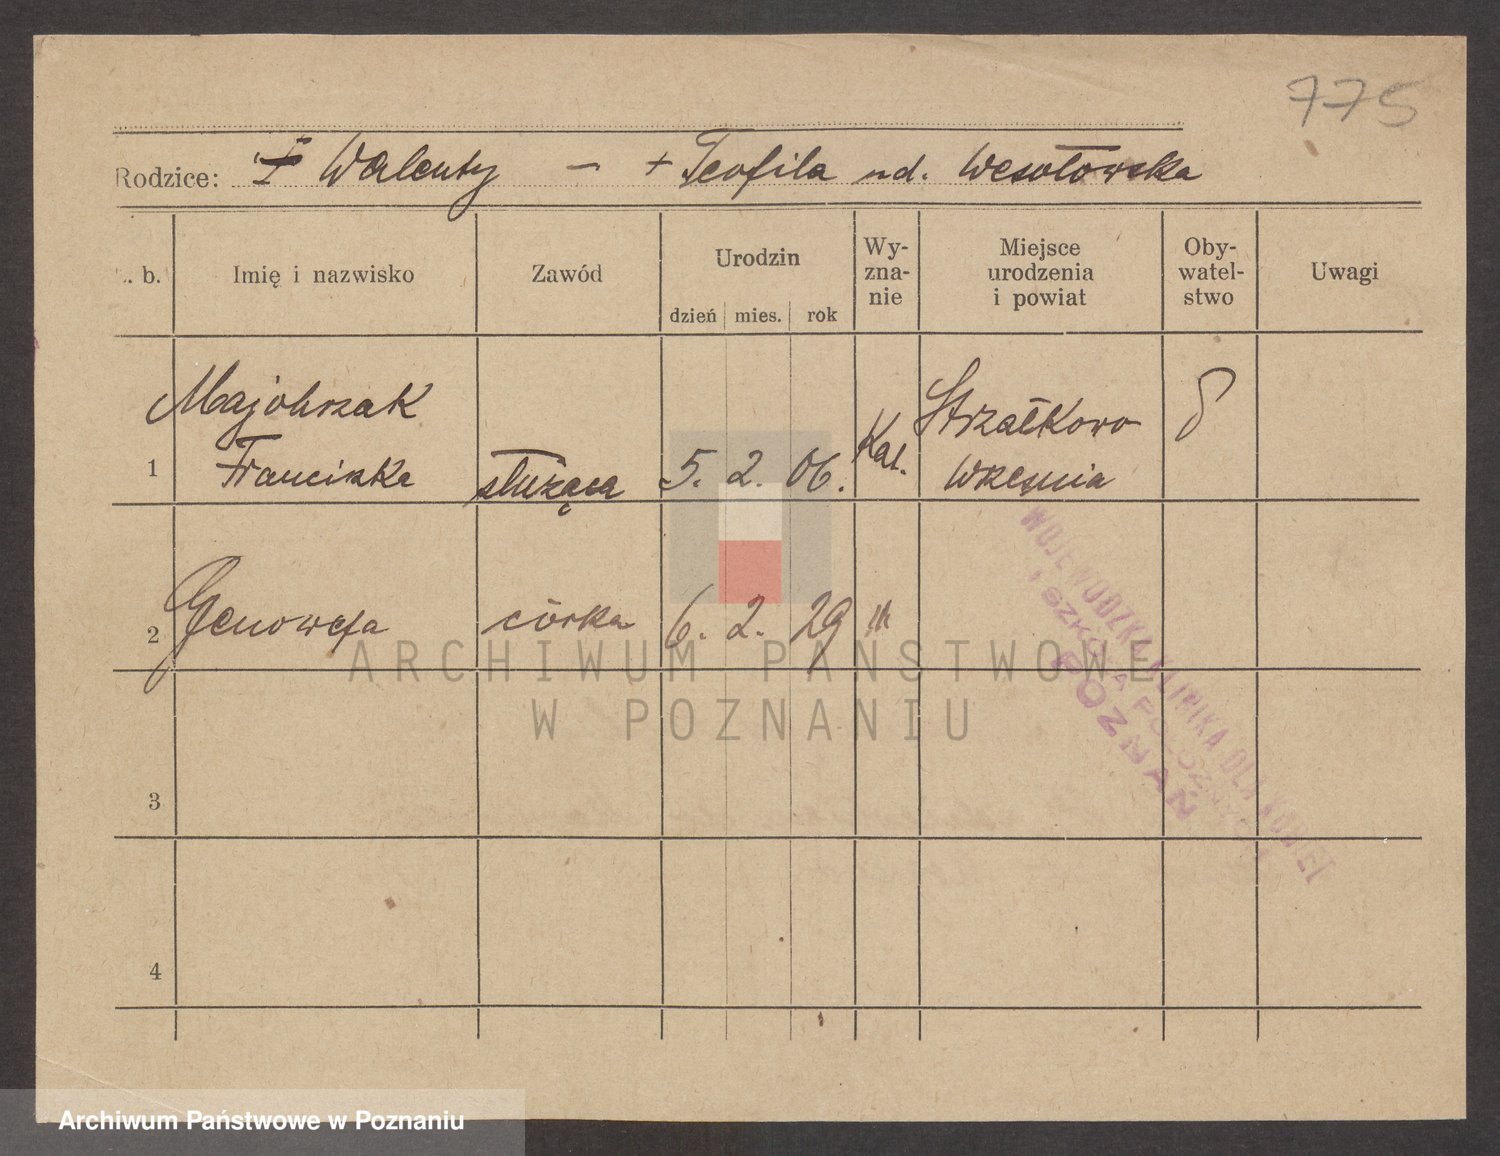 775
Rodzice: Walenty — + Teofila nd. Wesołowska
. b. Imię i nazwisko Zawód Urodzin dzień mies. rok Wy-zna-nie Miejsce urodzenia i powiat Oby-watel-stwo Uwagi
Majchrzak Strzałkowo
1 Franciszka służąca 5. 2. 06. Kat. Września
2 Genowefa córka 6. 2. 29 "
WOJEWÓDZKA KLINIKA DLA KOBIET
i SZKOŁA POŁOŻNYCH
POZNAŃ
ARCHIWUM PAŃSTWOWE
W POZNANIU
3
4
Archiwum Państwowe w Poznaniu